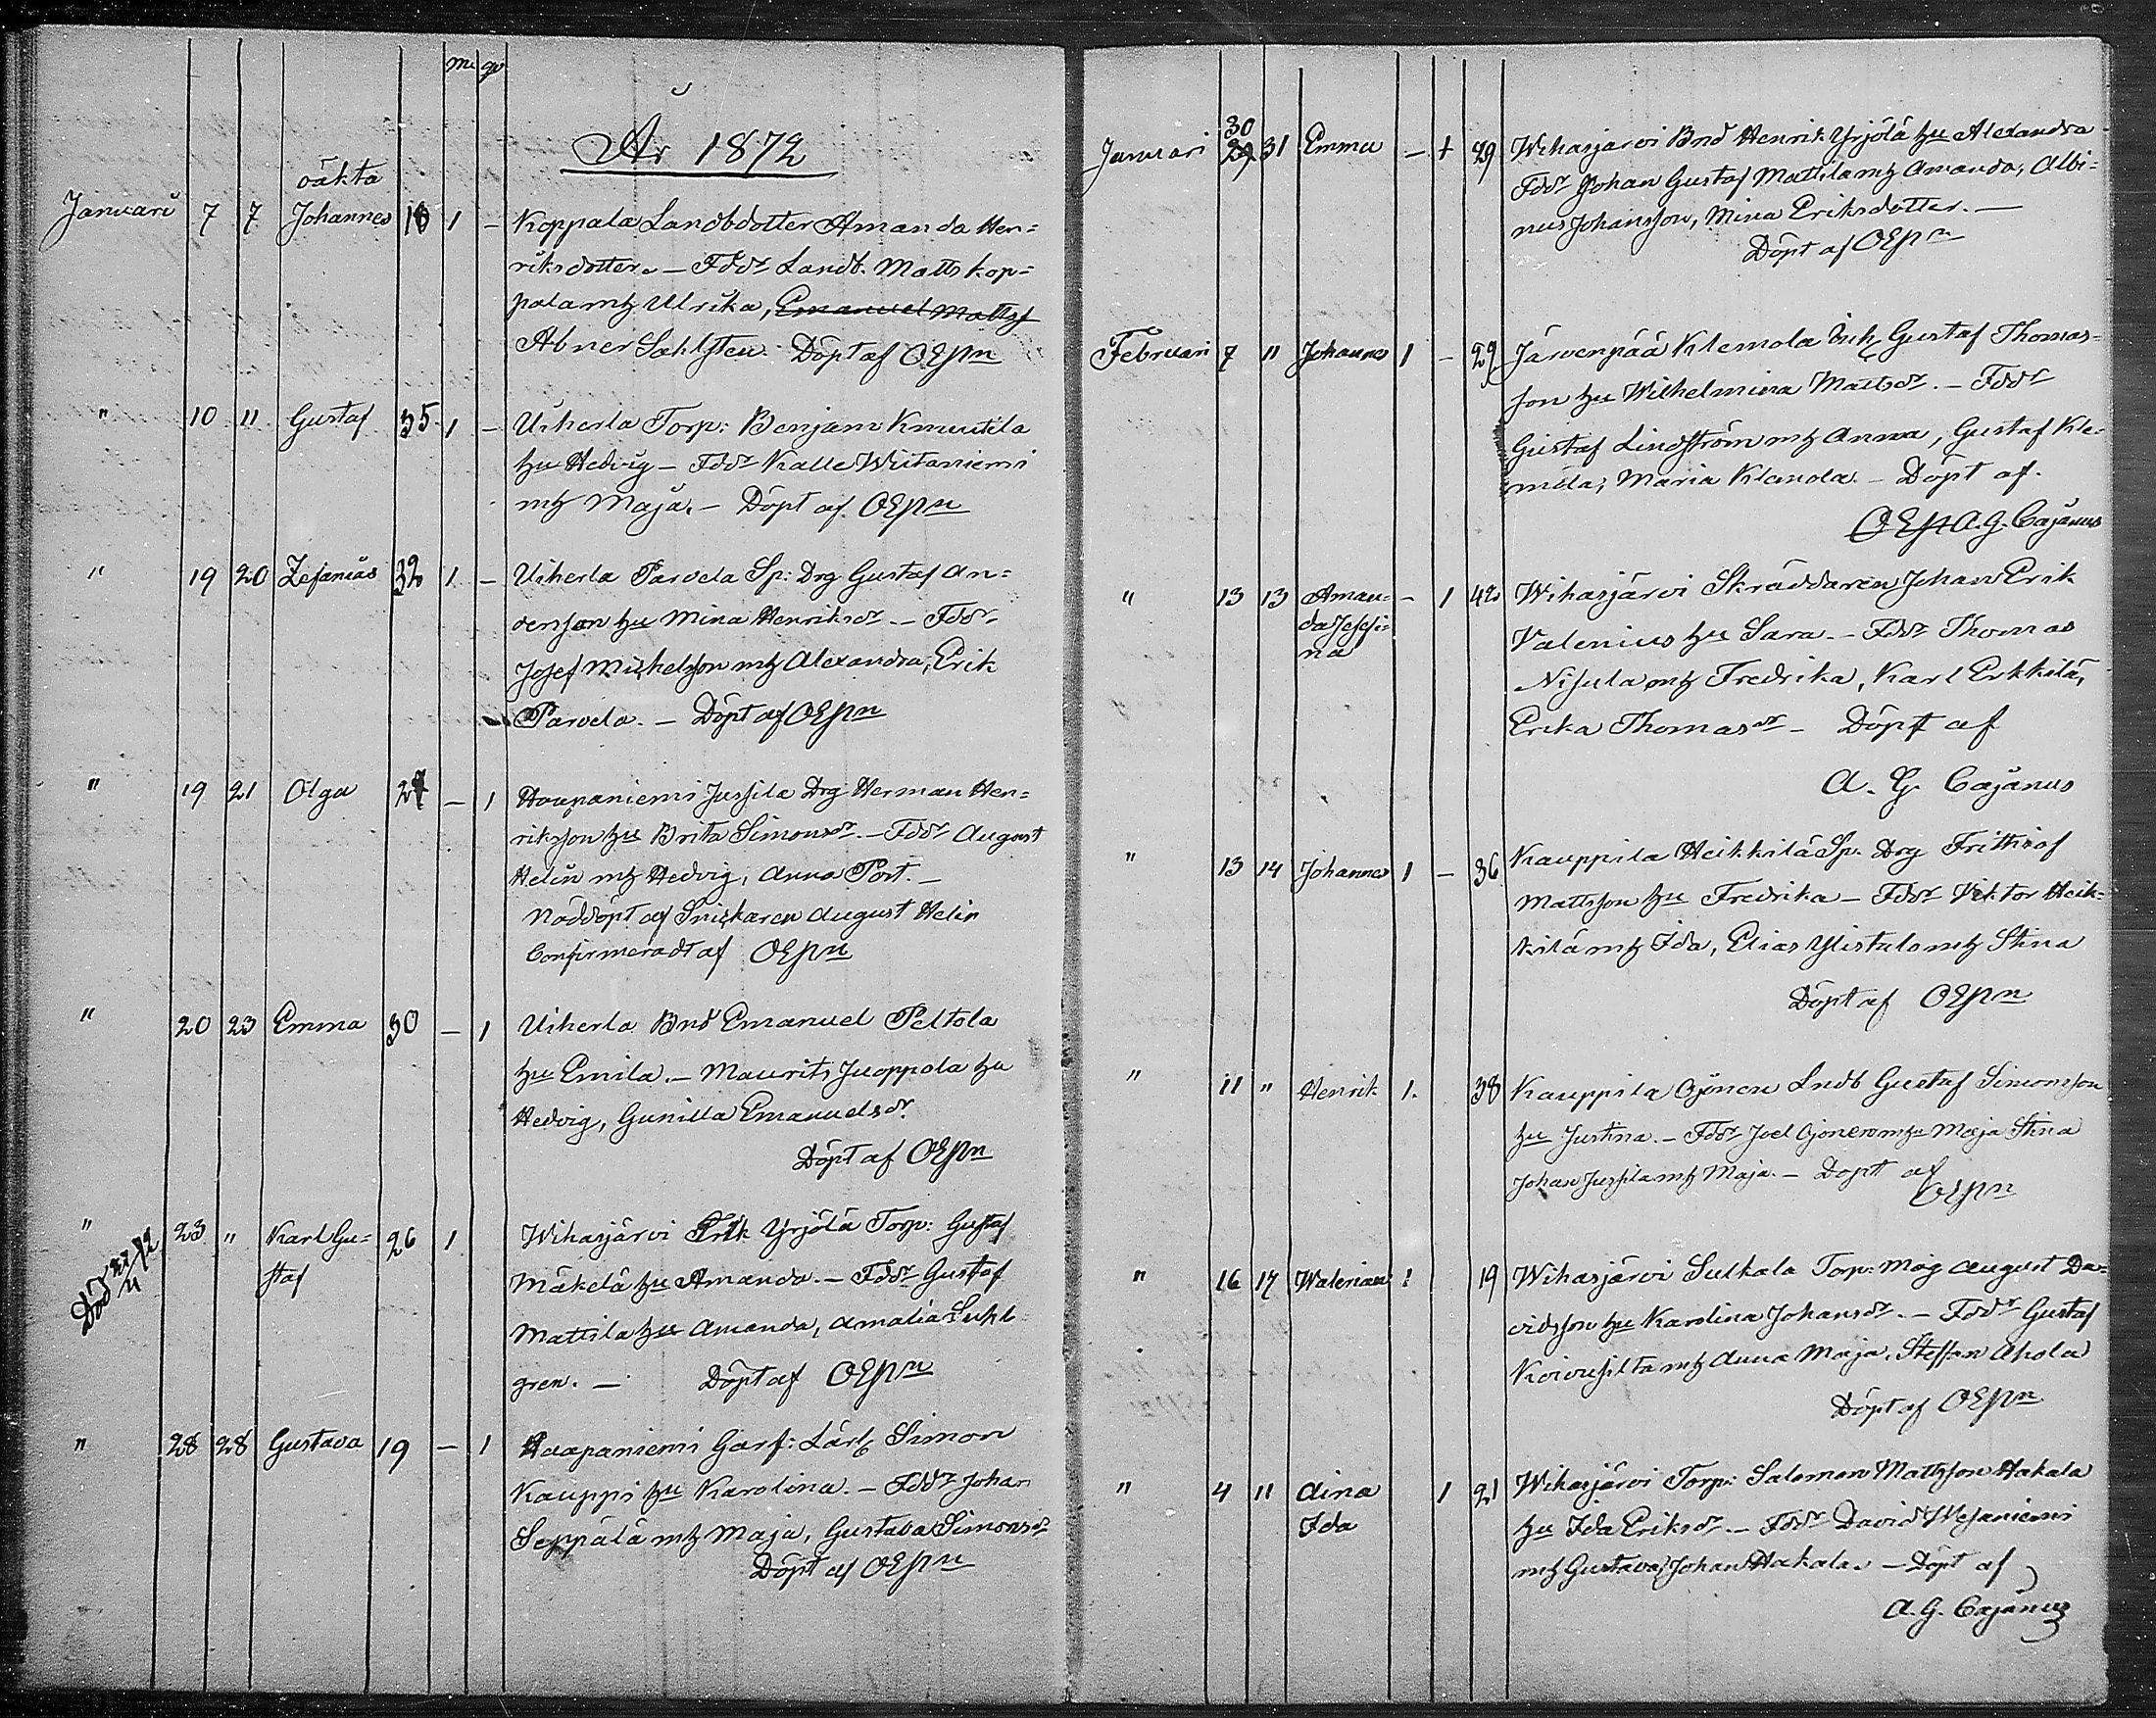 m. qv
År 1872
oäkta
Januari 7 7 Johannes 18 1 – Koppala Landbdotter Amanda Hen=
riksdotter. – Fddr Landb. Matts Kop=
pala mh Ulrika, Emanuel Mattss
Abner Sahlsten. Döpt af OEPn
" 10 11 Gustaf 35 1 – Uiherla Torp: Benjam Knuutila
hu Hedvig – Fddr Kalle Wiitaniemi
mh Maja. – Döpt af OEPn
" 19 20 Zefanias 32 1 – Uiherla Parvela Sp: Drg Gustaf An=
dersson hu Mina Henriksdr – Fddr
Josef Michelsson mh Alexandra, Erik
Parvela. – Döpt af OEPn
" 19 21 Olga 27 – 1 Haapaniemi Jussila Drg Herman Hen=
riksson hu Brita Simonsdr. – Fddr August
Helin mh Hedvig, Anna Port. –
Nöddöpt af Snickaren August Helin
Confirmeradt af OEPn
" 20 23 Emma 30 – 1 Uiherla Bnd Emanuel Peltola
hu Emila. – Maurits Juoppola hu
Hedvig, Gunilla Emanuelsdr.
Döpt af OEPn
" 23 " Karl Gu= 26 1 Wihasjärvi Yrjölä Torp: Gustaf
Död staf Mäkelä hu Amanda. – Fddr Gustaf
Mattila hu Amanda, Amalia Suhl
gren. – Döpt af OEPn
" 28 28 Gustava 19 – 1 Haapaniemi Garf: Lärl Simon
Kauppi hu Karolina. – Fddr Johan
Seppälä mh Maja, Gustava Simonsdr
Döpt af OEPn
Januari 30 29 31 Emma – 1 29 Wihasjärvi Bnd Henrik Yrjölä hu Alexandra
Fddr Johan Gustaf Mattila mh Amanda, Albi=
nus Johansson, Mina Eriksdotter. –
Döpt af OEPn
Februari 7 11 Johannes 1 – 29 Järvenpää Klemola Inh Gustaf Thomas=
son hu Wilhelmina Mattsdr. – Fddr
Gustaf Lindström mh Anna, Gustaf Kle=
mola, Maria Klemola. – Döpt af
OEP A. G. Cajanus
" 13 13 Aman= – 1 42 Wihasjärvi Skräddaren Johan Erik
da Josefi= Valenius hu Sara. – Fddr Thomas
na Nisula mh Fredrika, Karl Erkkilä,
Erika Thomasdr – Döpt af
A. G. Cajanus
" 13 14 Johannes 1 – 36 Kauppila Heikkilä Sp. Drg Frithiof
Mattsson hu Fredrika – Fddr Viktor Heik=
kilä mh Ida, Elias Ylistalo mh Stina
Döpt af OEPn
" 11 " Henrik 1. 38 Kauppila Ojonen Lndb Gustaf Simonsson
hu Justina. – Fddr Joel Ojonen mh Maja Stina
Johan Jussila mh Maja. – Döpt af
OEPn
" 16 17 Walerian 1 19 Wihasjärvi Sulkala Torp: Måg August Da=
vidsson hu Karolina Johansdr. – Fddr Gustaf
Koivusilta mh Anna Maja, Steffan Ahola
Döpt af OEPn
" 4 11 Aina 1 21 Wihasjärvi Torp: Salomon Mattsson Hakala
Ida hu Ida Eriksdr. – Fddr David
mh Gustava, Johan Hakala. – Döpt af
A. G. Cajanus